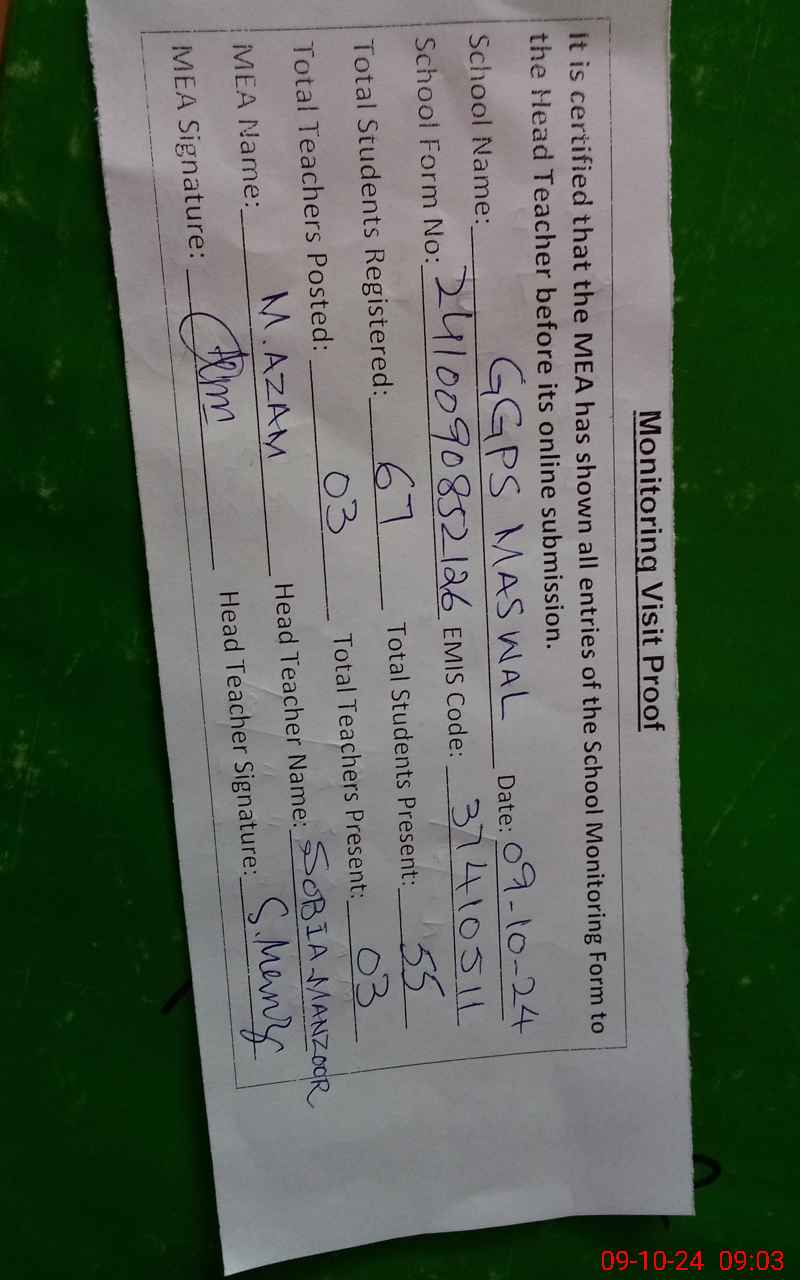 Monitoring Visit Proof
It is certified that the MEA has shown all entries of the School Monitoring Form to
the Head Teacher before its online submission.
School Name: GGPS MASWAL Date: 09-10-24
School Form No: 2410090852126 EMIS Code: 37410511
Total Students Registered: 67 Total Students Present: 55
Total Teachers Posted: 03 Total Teachers Present: 03
MEA Name: M. AZAM Head Teacher Name: SOBIA MANZOOR
MEA Signature: Head Teacher Signature:
09-10-24 09:03